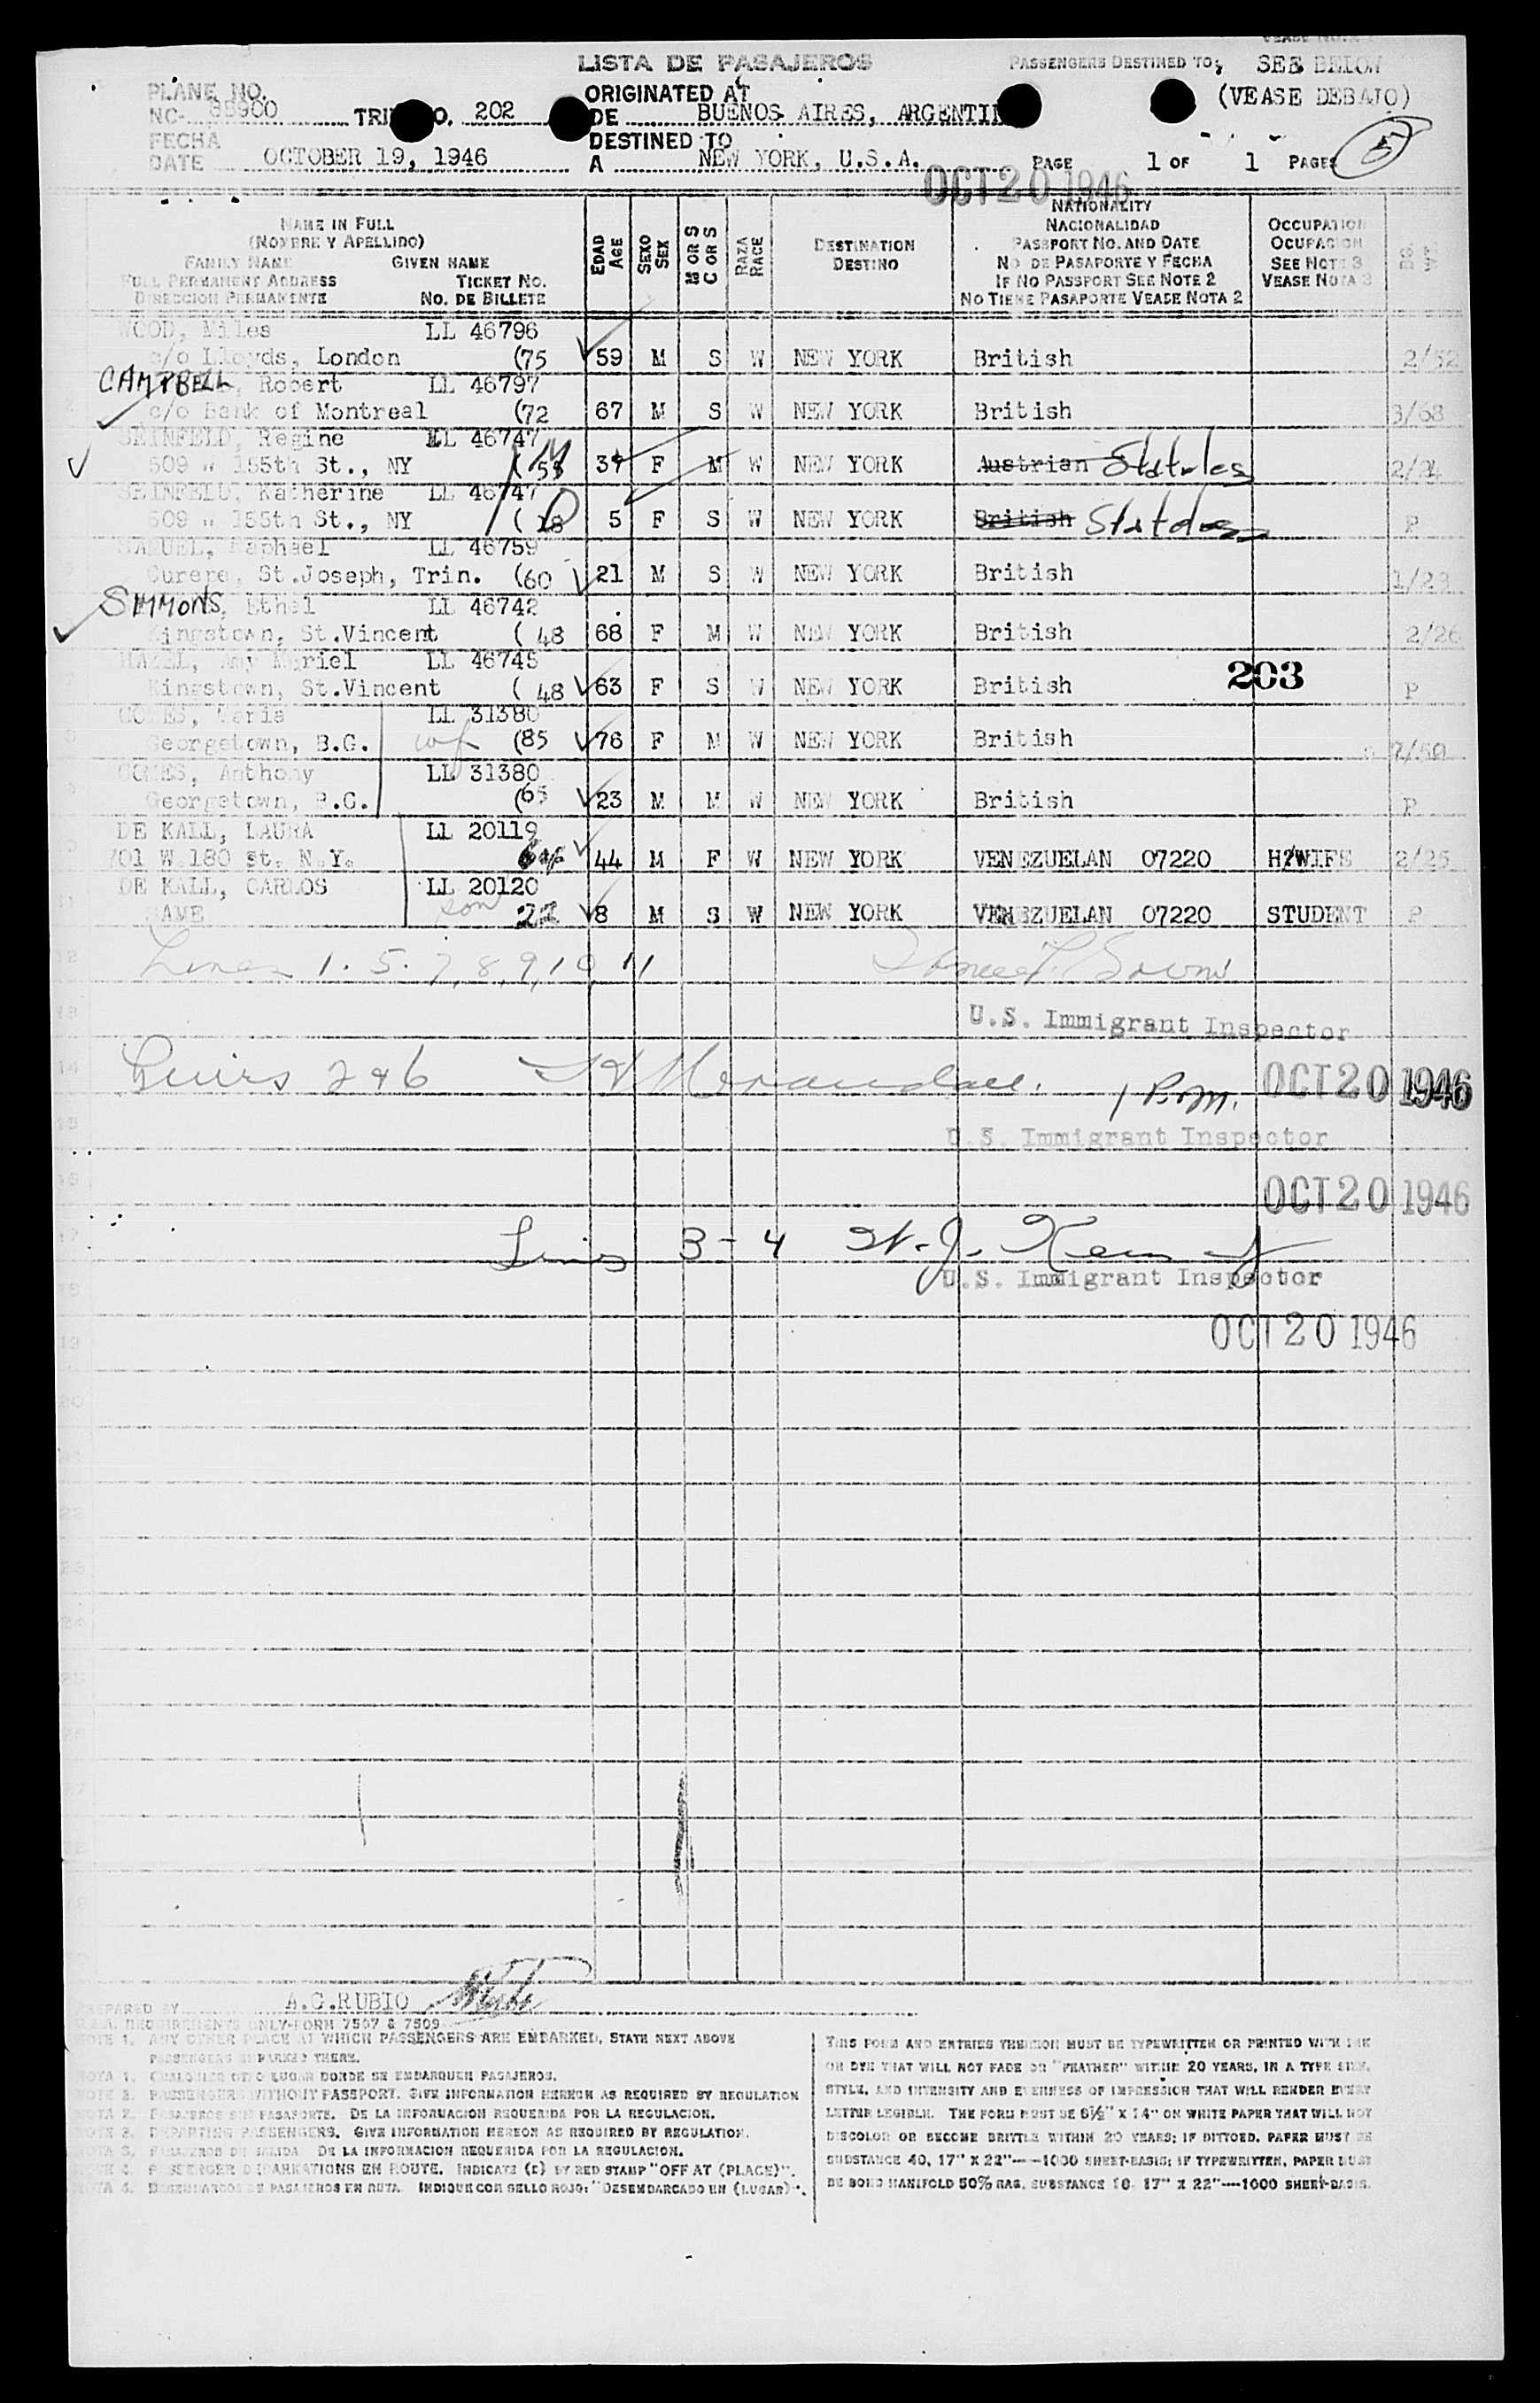 LISTA DE PASAJEROS
PASSENGERS DESTINED TO: SEE BELOW
(VEASE DEBAJO)
PLANE NO.
NC- 88900 TRIP NO. 202
ORIGINATED AT
DE BUENOS AIRES, ARGENTIN
FECHA
DATE OCTOBER 19, 1946
DESTINED TO
A NEW YORK, U.S.A.
PAGE 1 OF 1 PAGES
5
OCT 20 1946
NAME IN FULL
(NOMBRE Y APELLIDO)
FAMILY NAME GIVEN NAME
FULL PERMANENT ADDRESS TICKET NO.
DIRECCION PERMANENTE NO. DE BILLETE
EDAD
AGE
SEXO
SEX
M OR S
C OR S
RAZA
RACE
DESTINATION
DESTINO
NATIONALITY
NACIONALIDAD
PASSPORT NO. AND DATE
NO DE PASAPORTE Y FECHA
IF NO PASSPORT SEE NOTE 2
NO TIENE PASAPORTE VEASE NOTA 2
OCCUPATION
OCUPACION
SEE NOTE 3
VEASE NOTA 3
WOOD, Miles LL 46796
c/o Lloyds, London (75 59 M S W NEW YORK British 2/52
CAMPBELL, Robert LL 46797
c/o Bank of Montreal (72 67 M S W NEW YORK British 3/68
SEINFELD, Regine LL 46747
609 W 155th St., NY 37 F M W NEW YORK Austrian Stateless 2/24
SEINFELD, Katherine LL 46747
609 W 155th St., NY 5 F S W NEW YORK British Stateless P
SAMUEL, Raphael LL 46759
Curepe, St.Joseph, Trin. (60 21 M S W NEW YORK British 1/23
SIMMONS, Ethel LL 46742
Kingstown, St.Vincent (48 68 F M W NEW YORK British 2/26
HAZEL, Amy Muriel LL 46745
Kingstown, St.Vincent (48 63 F S W NEW YORK British 203 P
GOMES, Maria LL 31380
Georgetown, B.G. (85 76 F M W NEW YORK British 7/50
GOMES, Anthony LL 31380
Georgetown, B.G. (65 23 M M W NEW YORK British P
DE KALL, LAURA LL 20119
701 W 180 st. N.Y. 44 M F W NEW YORK VENEZUELAN 07220 H/WIFE 2/25
DE KALL, CARLOS LL 20120
SAME son 22 8 M S W NEW YORK VENEZUELAN 07220 STUDENT P
Lines 1. 5. 7, 8, 9, 10, 11
U.S. Immigrant Inspector
Lines 2 & 6
1 P.M.
OCT 20 1946
U.S. Immigrant Inspector
OCT 20 1946
Lines 3-4
U.S. Immigrant Inspector
OCT 20 1946
PREPARED BY A.G.RUBIO
REQUIREMENTS ONLY-FORM 7507 & 7509
NOTE 1. ANY OTHER PLACE AT WHICH PASSENGERS ARE EMBARKED, STATE NEXT ABOVE
PASSENGERS EMBARKED THERE.
NOTA 1. CUALQUIER OTRO LUGAR DONDE SE EMBARQUEN PASAJEROS.
NOTE 2. PASSENGERS WITHOUT PASSPORT. GIVE INFORMATION HEREON AS REQUIRED BY REGULATION
NOTA 2. PASAJEROS SIN PASAPORTE. DE LA INFORMACION REQUERIDA POR LA REGULACION.
NOTE 3. DEPARTING PASSENGERS. GIVE INFORMATION HEREON AS REQUIRED BY REGULATION.
NOTA 3. PASAJEROS DE SALIDA DE LA INFORMACION REQUERIDA POR LA REGULACION.
NOTE 4. PASSENGER DEBARKATIONS EN ROUTE. INDICATE (E) BY RED STAMP "OFF AT (PLACE)".
NOTA 4. DESEMBARCOS DE PASAJEROS EN RUTA. INDIQUE CON SELLO ROJO: "DESEMBARCADO EN (LUGAR)".
THIS FORM AND ENTRIES THEREON MUST BE TYPEWRITTEN OR PRINTED WITH INK
OR DYE THAT WILL NOT FADE OR "FEATHER" WITHIN 20 YEARS, IN A TYPE SIZE,
STYLE, AND INTENSITY AND EVENNESS OF IMPRESSION THAT WILL RENDER EVERY
LETTER LEGIBLE. THE FORM MUST BE 8½" X 14" ON WHITE PAPER THAT WILL NOT
DISCOLOR OR BECOME BRITTLE WITHIN 20 YEARS; IF DITTOED, PAPER MUST BE
SUBSTANCE 40, 17" X 22"----1000 SHEET-BASIS; IF TYPEWRITTEN, PAPER MUST
BE BOND MANIFOLD 50% RAG, SUBSTANCE 16 17" X 22"----1000 SHEET-BASIS.